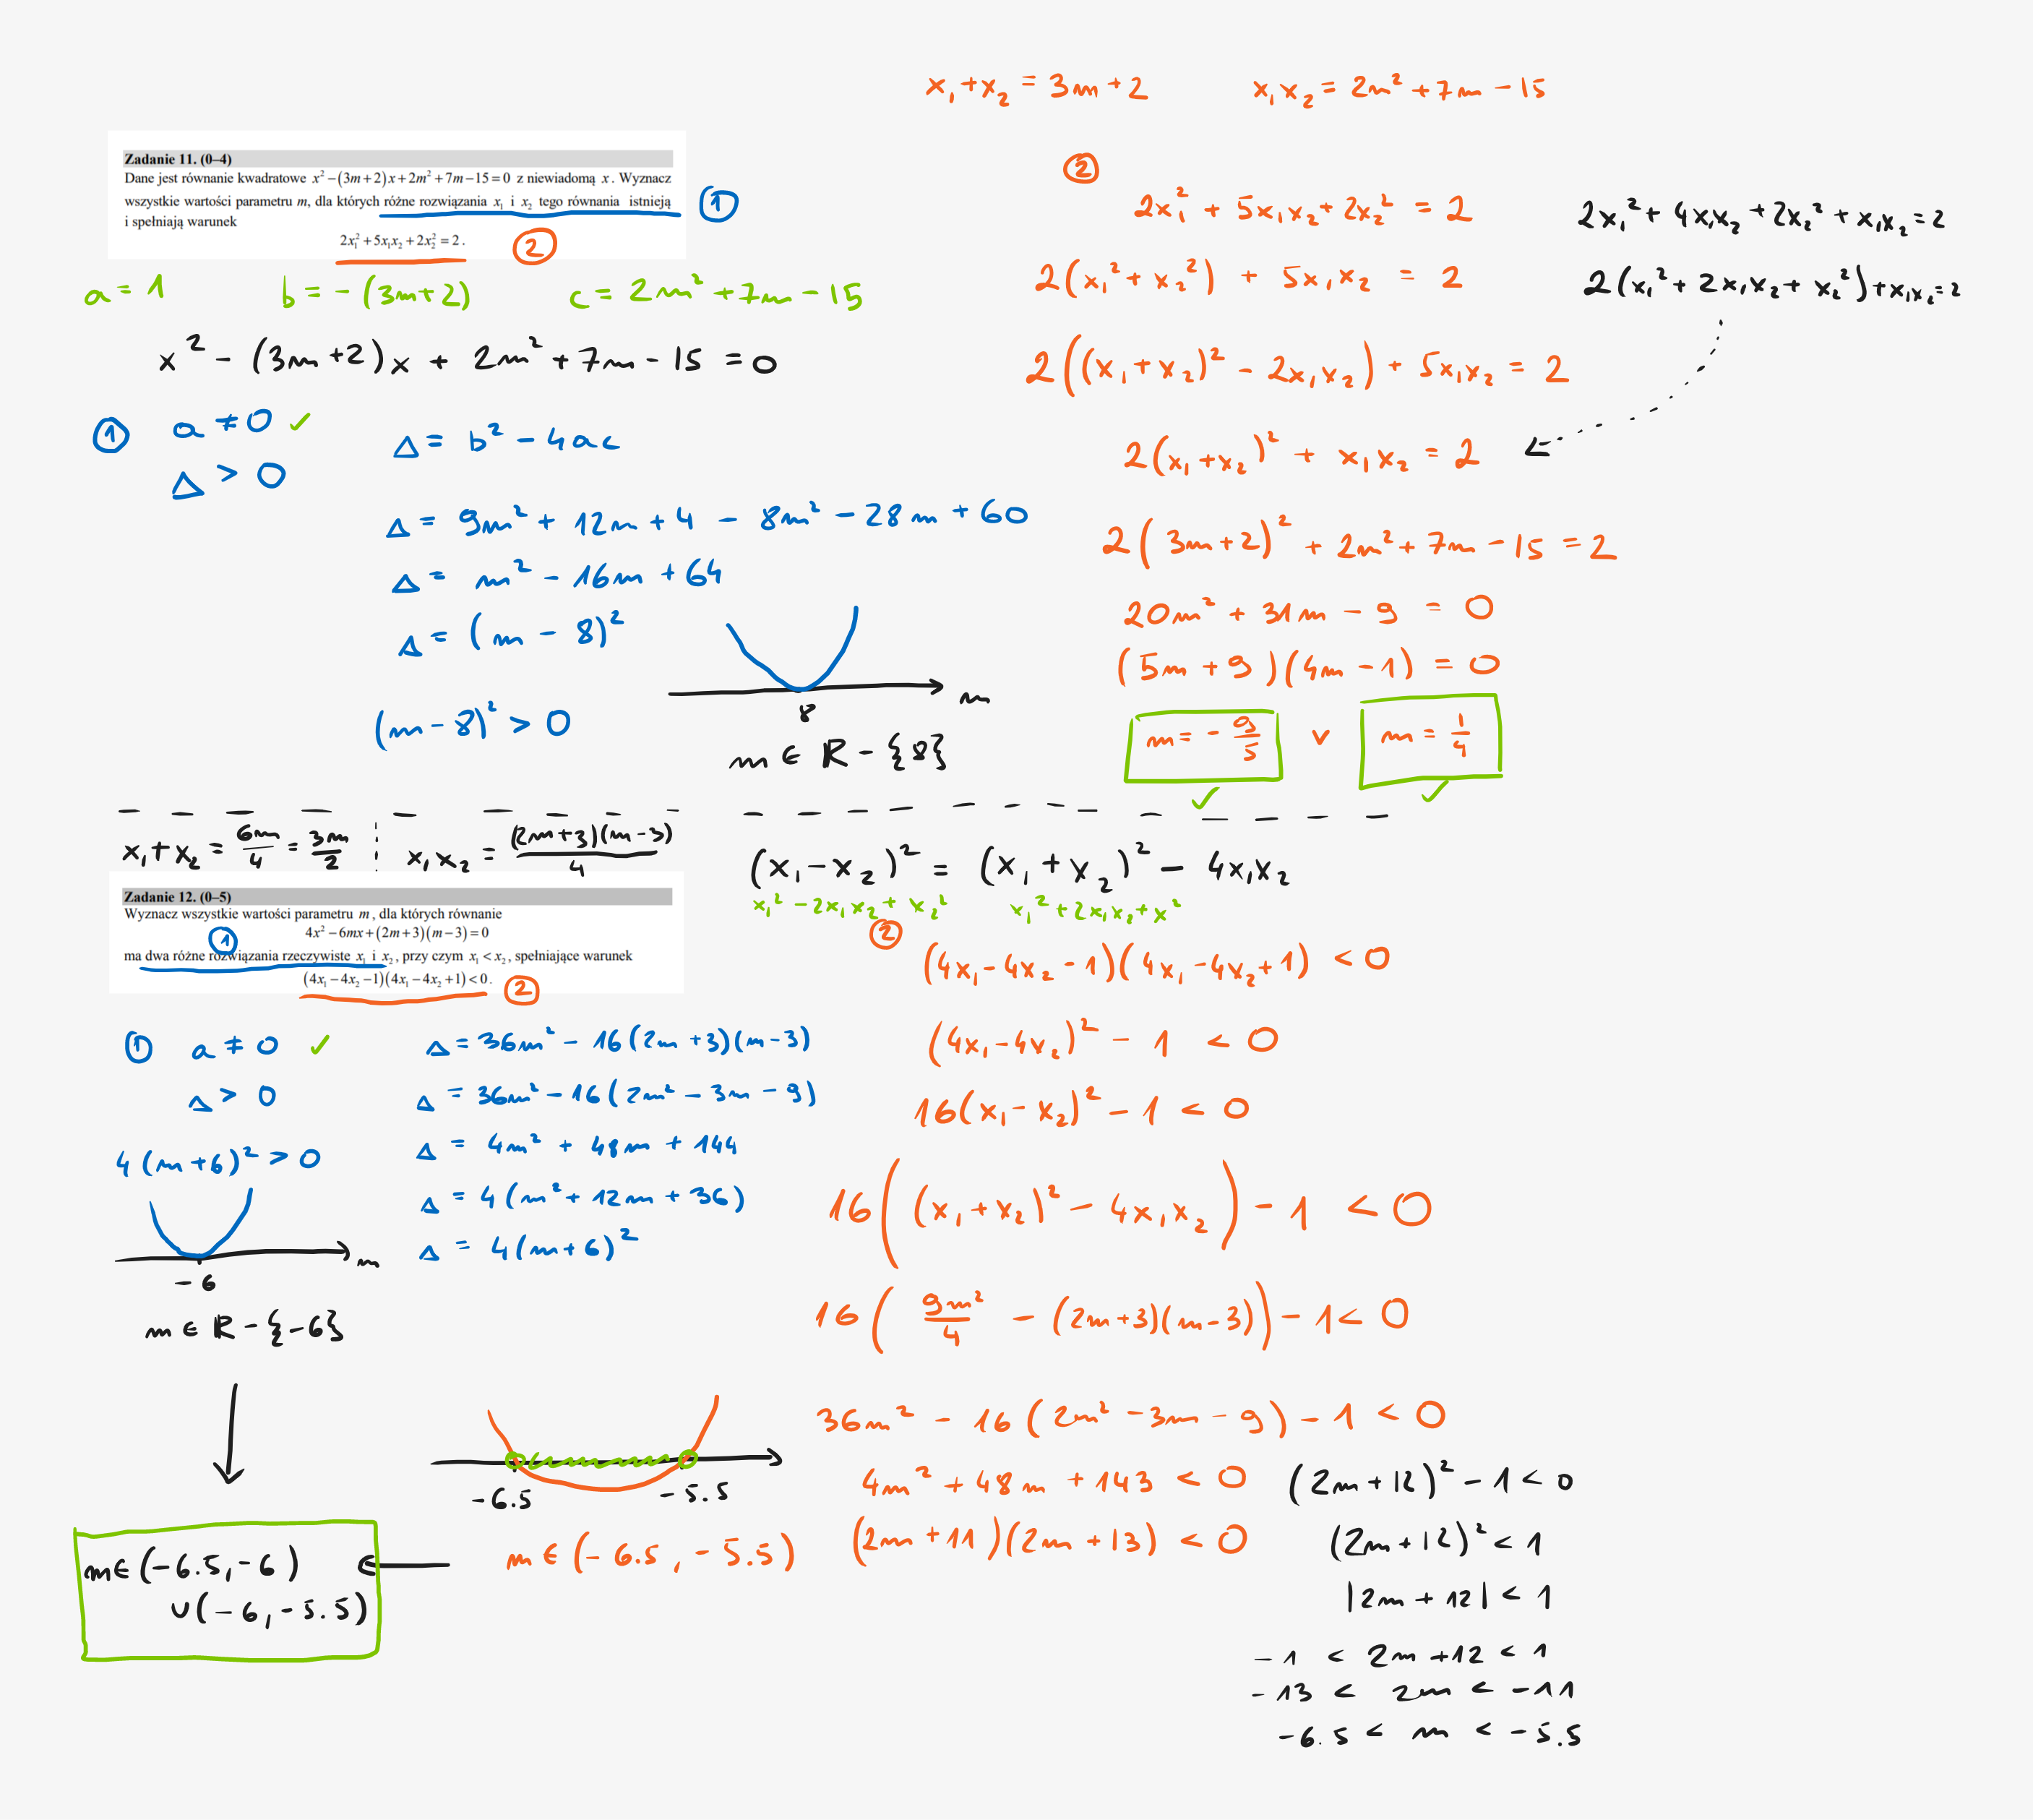 x₁+x₂ = 3m+2
x₁x₂ = 2m²+7m-15
Zadanie 11. (0–4)
Dane jest równanie kwadratowe x² −(3m+2)x+2m² +7m−15=0 z niewiadomą x. Wyznacz
wszystkie wartości parametru m, dla których różne rozwiązania x₁ i x₂ tego równania istnieją
i spełniają warunek
2x₁² +5x₁x₂ +2x₂² =2.
① ②
a=1 b=-(3m+2) c=2m²+7m-15
x²-(3m+2)x+2m²+7m-15=0
① a≠0 ✓
Δ>0
Δ=b²-4ac
Δ=9m²+12m+4-8m²-28m+60
Δ=m²-16m+64
Δ=(m-8)²
(m-8)²>0
8 m
m∈R-{8}
②
2x₁²+5x₁x₂+2x₂²=2
2(x₁²+x₂²)+5x₁x₂=2
2((x₁+x₂)²-2x₁x₂)+5x₁x₂=2
2(x₁+x₂)²+x₁x₂=2
2(3m+2)²+2m²+7m-15=2
20m²+31m-9=0
(5m+9)(4m-1)=0
m=-9/5 v m=1/4
✓ ✓
2x₁²+4x₁x₂+2x₂²+x₁x₂=2
2(x₁²+2x₁x₂+x₂²)+x₁x₂=2
x₁+x₂=6m/4=3m/2
x₁x₂=(2m+3)(m-3)/4
Zadanie 12. (0–5)
Wyznacz wszystkie wartości parametru m, dla których równanie
4x² −6mx+(2m+3)(m−3)=0
ma dwa różne rozwiązania rzeczywiste x₁ i x₂, przy czym x₁ < x₂, spełniające warunek
(4x₁ −4x₂ −1)(4x₁ −4x₂ +1)<0.
① ②
① a≠0 ✓
Δ>0
4(m+6)²>0
-6 m
m∈R-{-6}
Δ=36m²-16(2m+3)(m-3)
Δ=36m²-16(2m²-3m-9)
Δ=4m²+48m+144
Δ=4(m²+12m+36)
Δ=4(m+6)²
(x₁-x₂)²=(x₁+x₂)²-4x₁x₂
x₁²-2x₁x₂+x₂² x₁²+2x₁x₂+x²
②
(4x₁-4x₂-1)(4x₁-4x₂+1)<0
(4x₁-4x₂)²-1<0
16(x₁-x₂)²-1<0
16((x₁+x₂)²-4x₁x₂)-1<0
16(9m²/4-(2m+3)(m-3))-1<0
36m²-16(2m²-3m-9)-1<0
4m²+48m+143<0
(2m+11)(2m+13)<0
(2m+12)²-1<0
(2m+12)²<1
|2m+12|<1
-1<2m+12<1
-13<2m<-11
-6.5<m<-5.5
-6.5 -5.5
m∈(-6.5,-5.5)
m∈(-6.5,-6)
∪(-6,-5.5)